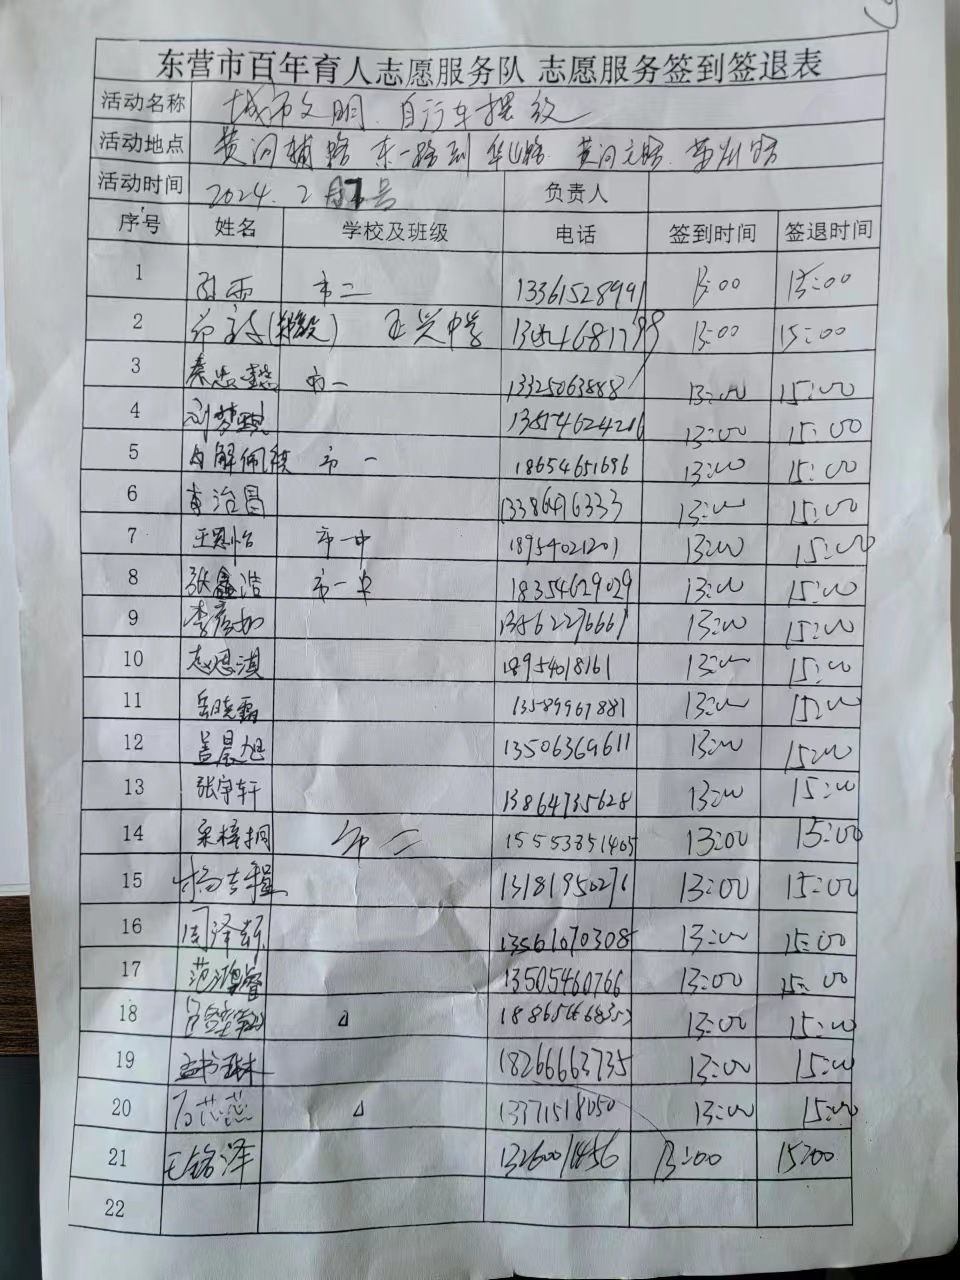 东营市百年育人志愿服务队 志愿服务签到签退表
活动名称 城市文明.自行车摆放
活动地点 黄河辅路 东一路到华山路 黄河
活动时间 2024.2 号 负责人
序号 姓名 学校及班级 电话 签到时间 签退时间
1 雨 市二 13361528991 13:00 15:00
2 正兴中学 13:00 15:00
3 市一 13325063888 13:00 15:00
4 刘梦 13:00 15:00
5 解佩祺 市一 18654651696 13:00 15:00
6 治昌 13386476333 13:00 15:00
7 王思怡 市一中 18954021201 13:00 15:00
8 张鑫浩 市一中 18354629029 13:00 15:00
9 李彦 13562276661 13:00 15:00
10 赵恩淇 18954018161 13:00 15:00
11 岳晓霜 13589967881 13:00 15:00
12 盖晨旭 13506369611 13:00 15:00
13 张宇轩 13864735628 13:00 15:00
14 梓桐 市二 15553851405 13:00 15:00
15 杨 13181950271 13:00 15:00
16 周泽 13561070308 13:00 15:00
17 范 13505460766 13:00 15:00
18 13:00 15:00
19 孟书琳 18266663735 13:00 15:00
20 石蕊蕊 13371518050 13:00 15:00
21 王铭泽 13260011456 13:00 15:00
22